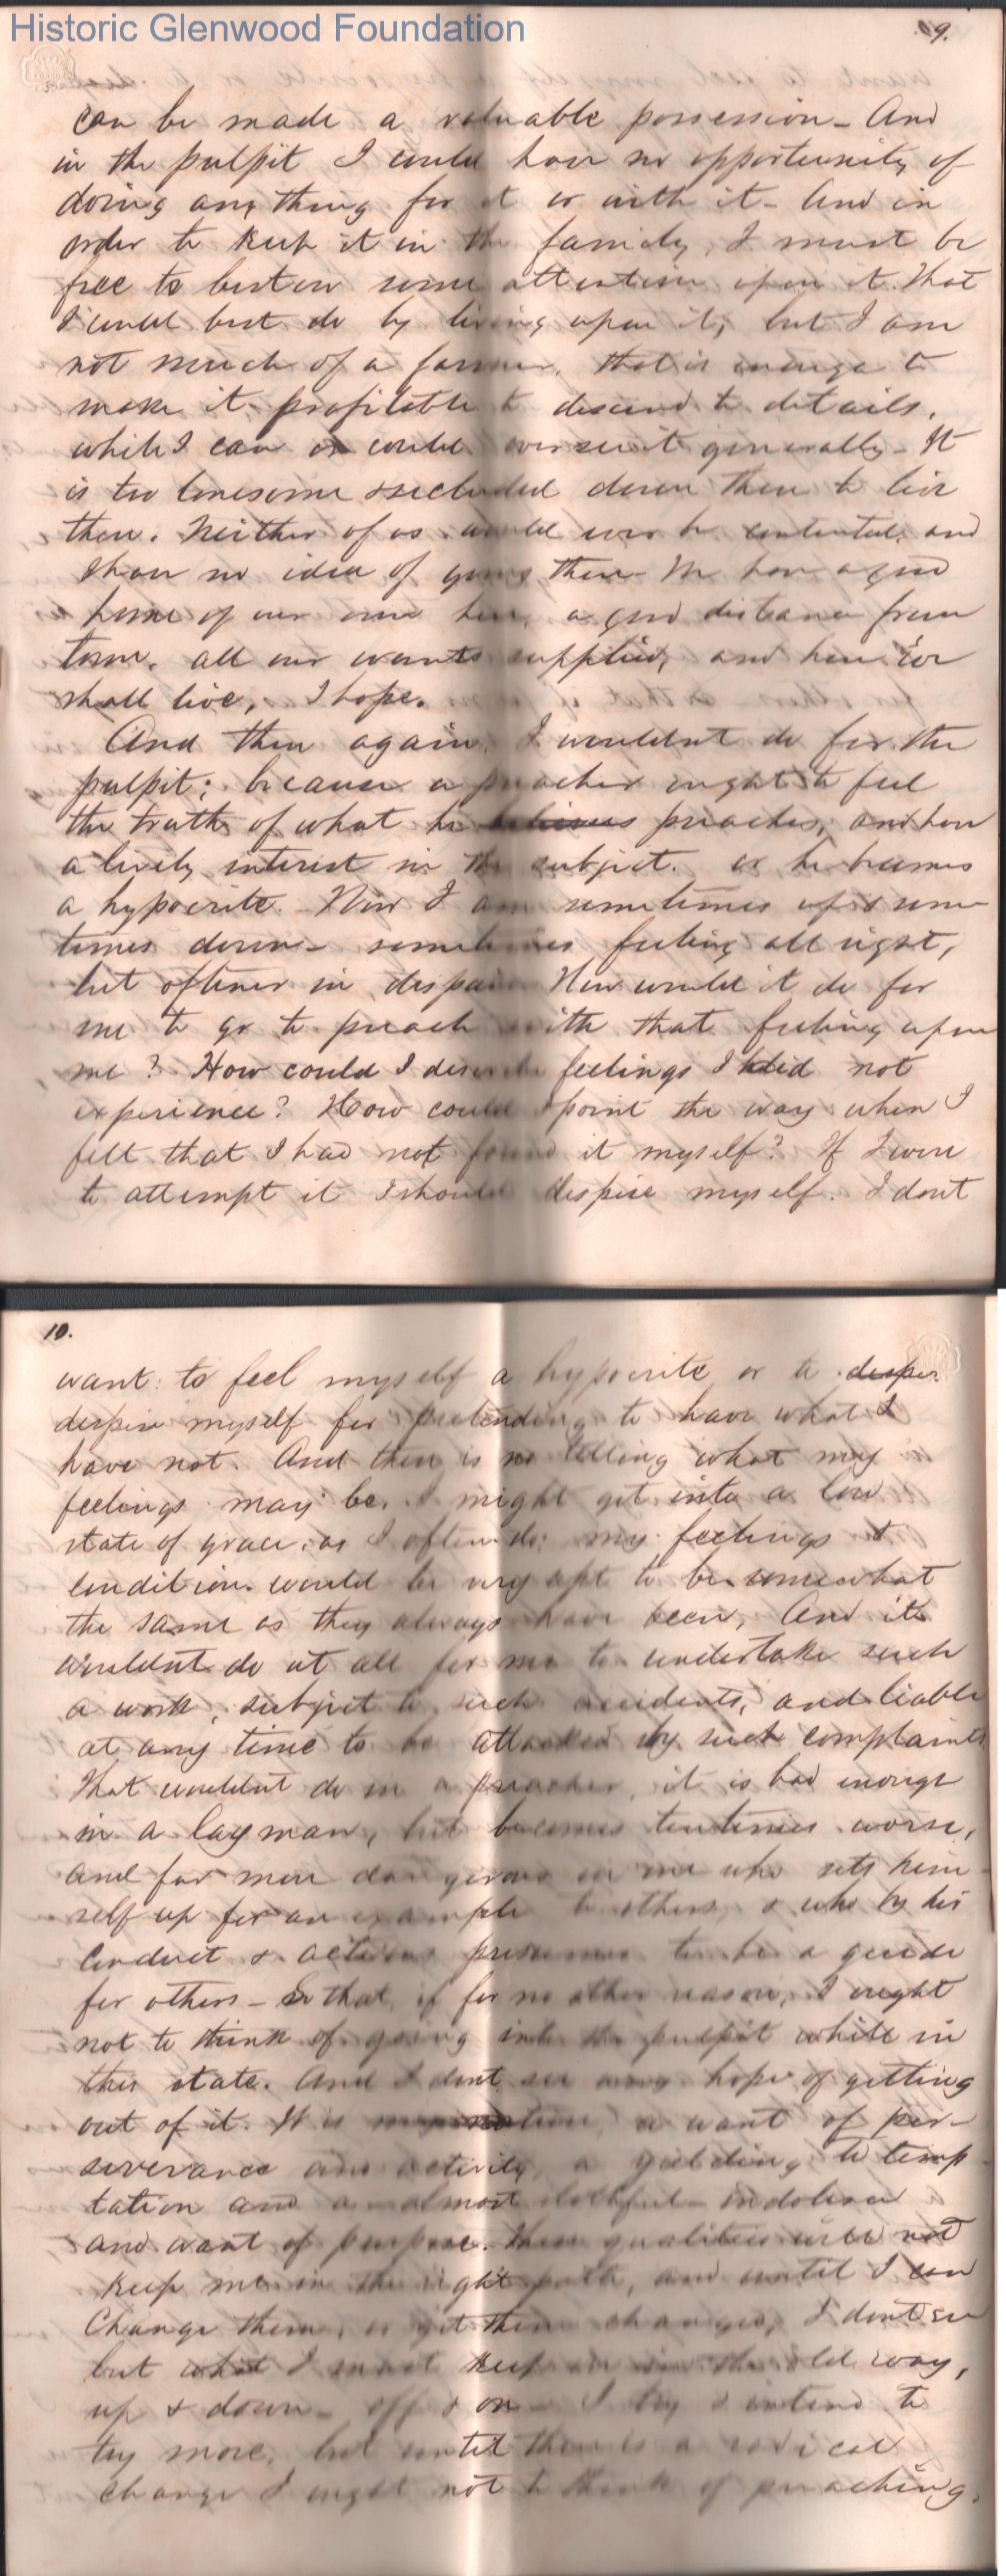 Historic Glenwood Foundation
9.
can be made a valuable possession - And
in the pulpit I could have no opportunity of
doing any thing for it or with it - And in
order to keep it in the family, I must be
free to bestow some attention upon it. That
I could best do by living upon it, but I am
not much of a farmer, that is enough to
make it profitable to descend to details,
while I can or could oversee it generally - It
is too lonesome & secluded down there to live
there. Neither of us would ever be contented, and
I have no idea of going there - We have a good
home of our own here, a good distance from
town, all our wants supplied, and here we
shall live, I hope.
And then again, I wouldnt do for the
pulpit; because a preacher ought to feel
the truth of what he believes preaches, and have
a lively interest in the subject. or he becomes
a hypocrite. Now I am sometimes up & some
times down - sometimes feeling all right,
but oftener in despair. How would it do for
me to go to preach with that feeling upon
me? How could I describe feelings I did not
experience? How could I point the way when I
felt that I had not found it myself? If I were
to attempt it I should despise myself. I dont
10.
want to feel myself a hypocrite or to
despise myself for pretending to have what I
have not. And there is no telling what my
feelings may be. I might get into a low
state of grace, as I often do; my feelings &
condition would be very apt to be somewhat
the same as they always have been, And it
wouldnt do at all for me to undertake such
a work, subject to such accidents, and liable
at any time to be attacked by such complaints
That wouldnt do in a preacher, it is bad enough
in a layman, but becomes ten times worse,
and far more dangerous in one who sets him-
self up for an example to others, & who by his
conduct & actions presumes to be a guide
for others - So that, if for no other reason, I ought
not to think of going into the pulpit while in
this state. And I dont see any hope of getting
out of it. It is my nature, a want of per-
severance and activity, a yielding to temp-
tation and an almost slothful indolence
and want of purpose. These qualities will not
keep me in the right path, and until I can
change them, or get them changed, I dont see
but what I must keep on in the old way,
up & down - off & on - I try & intend to
try more, but until there is a radical
change I ought not to think of preaching.